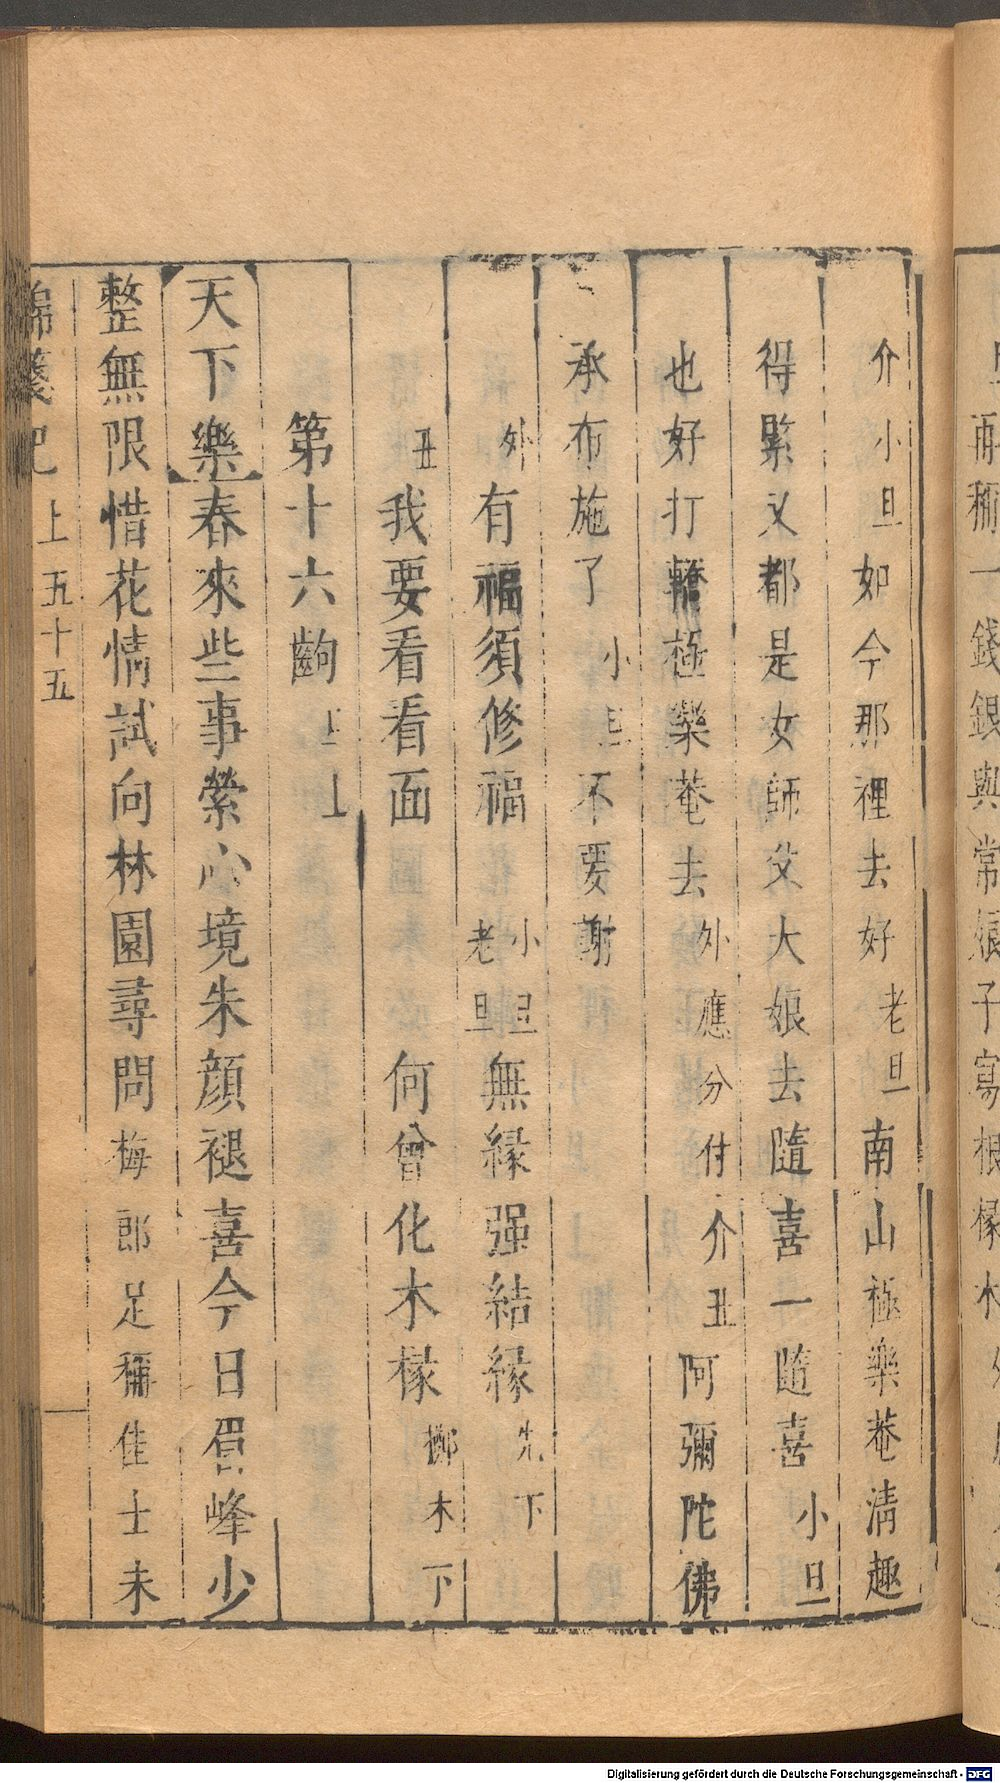 再稱一錢銀與常娘子寫根椽木
介小旦如今那裡去好老旦南山極樂菴清趣
得緊又都是女師父大娘去隨喜一隨喜小旦
也好打轎極樂菴去外應分付介丑阿彌陀佛
承布施了小旦不要謝
外有福須修福小旦老旦無緣强結緣先下
丑我要看看面何曾化木椽擲木下
第十六齣
天下樂春來些事縈心境朱顔褪喜今日眉峰少
整無限惜花情試向林園尋問梅郎足稱佳士未
錦箋記 上 五十五
Digitalisierung gefördert durch die Deutsche Forschungsgemeinschaft - DFG